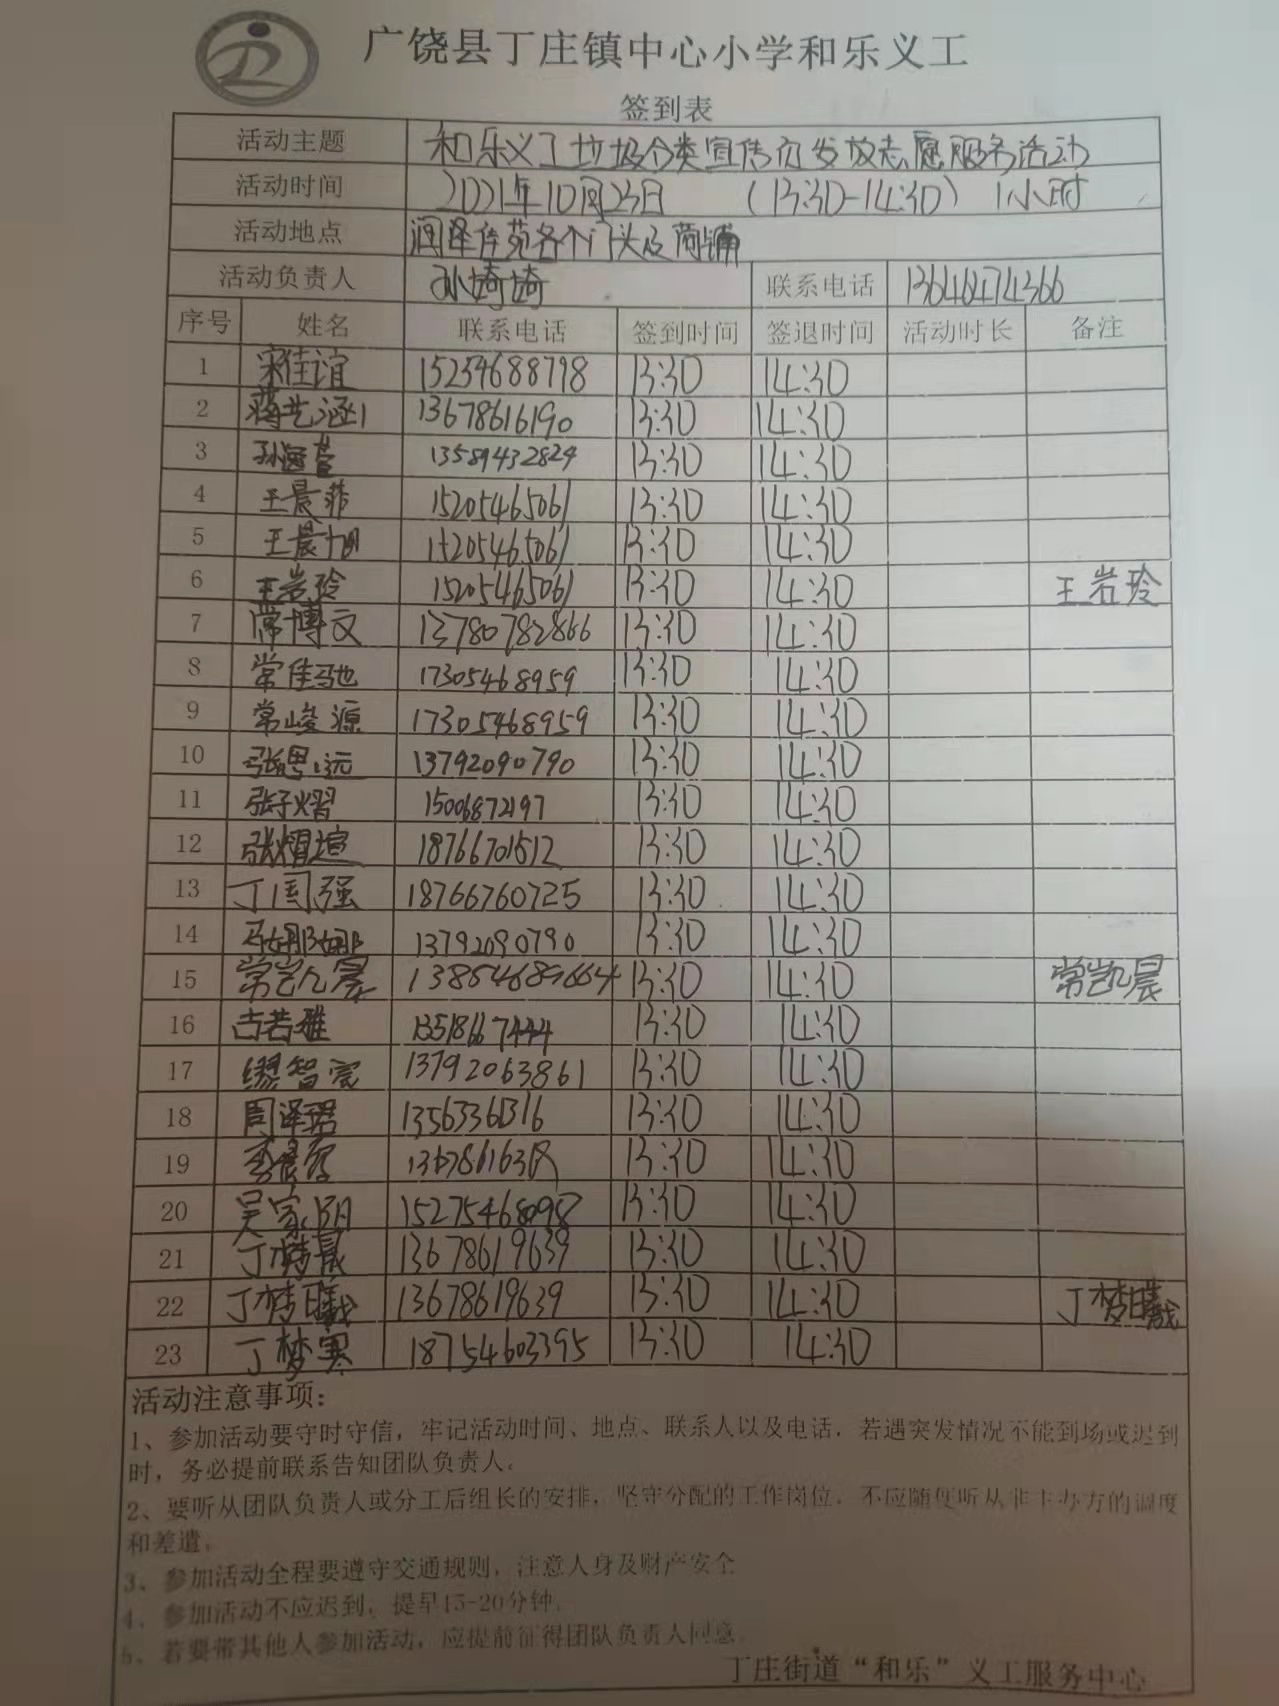 广饶县丁庄镇中心小学和乐义工
签到表
活动主题 和乐义工垃圾分类宣传页发放志愿服务活动
活动时间 2021年10月23日 (13:30-14:30) 1小时
活动地点 润泽佳苑各个门头及商铺
活动负责人 孙崎崎 联系电话 13646474366
序号 姓名 联系电话 签到时间 签退时间 活动时长 备注
1 宋佳谊 15254688798 13:30 14:30
2 蒋艺涵 13678616190 13:30 14:30
3 孙海萱 13589432824 13:30 14:30
4 王晨菲 15205465061 13:30 14:30
5 王晨旭 15205465061 13:30 14:30
6 王岩玲 15205465061 13:30 14:30 王岩玲
7 常博文 13780782866 13:30 14:30
8 常佳驰 17305468959 13:30 14:30
9 常峻源 17305468959 13:30 14:30
10 张思远 13792090790 13:30 14:30
11 张子熠 15006872197 13:30 14:30
12 张熠煊 18766701512 13:30 14:30
13 丁周强 18766760725 13:30 14:30
14 马娜娜 13792090790 13:30 14:30
15 常凯晨 13854689664 13:30 14:30 常凯晨
16 古若雅 13518667444 13:30 14:30
17 缪智宸 13792063861 13:30 14:30
18 周泽珺 13563361316 13:30 14:30
19 13:30 14:30
20 吴家阳 15275468098 13:30 14:30
21 丁梦晟 13678619639 13:30 14:30
22 丁梦曦 13678619639 13:30 14:30 丁梦曦
23 丁梦寒 18754603395 13:30 14:30
活动注意事项：
1、参加活动要守时守信，牢记活动时间、地点、联系人以及电话，若遇突发情况不能到场或迟到
时，务必提前联系告知团队负责人。
2、要听从团队负责人或分工后组长的安排，坚守分配的工作岗位，不应随便听从非主办方的调度
和差遣。
3、参加活动全程要遵守交通规则，注意人身及财产安全
4、参加活动不应迟到，提早15-20分钟。
5、若要带其他人参加活动，应提前征得团队负责人同意。
丁庄街道“和乐”义工服务中心